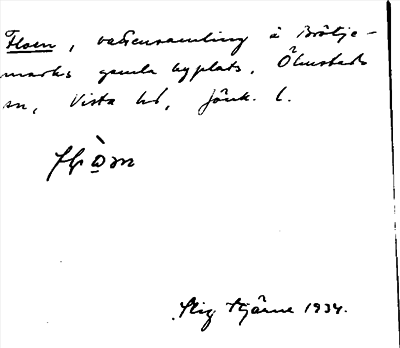 Floen, vattensamling å Brötje-
marks gamla byplats. Ölmstads
sn, Vista hd, Jönk. l.
Stig Hjärne 1934.